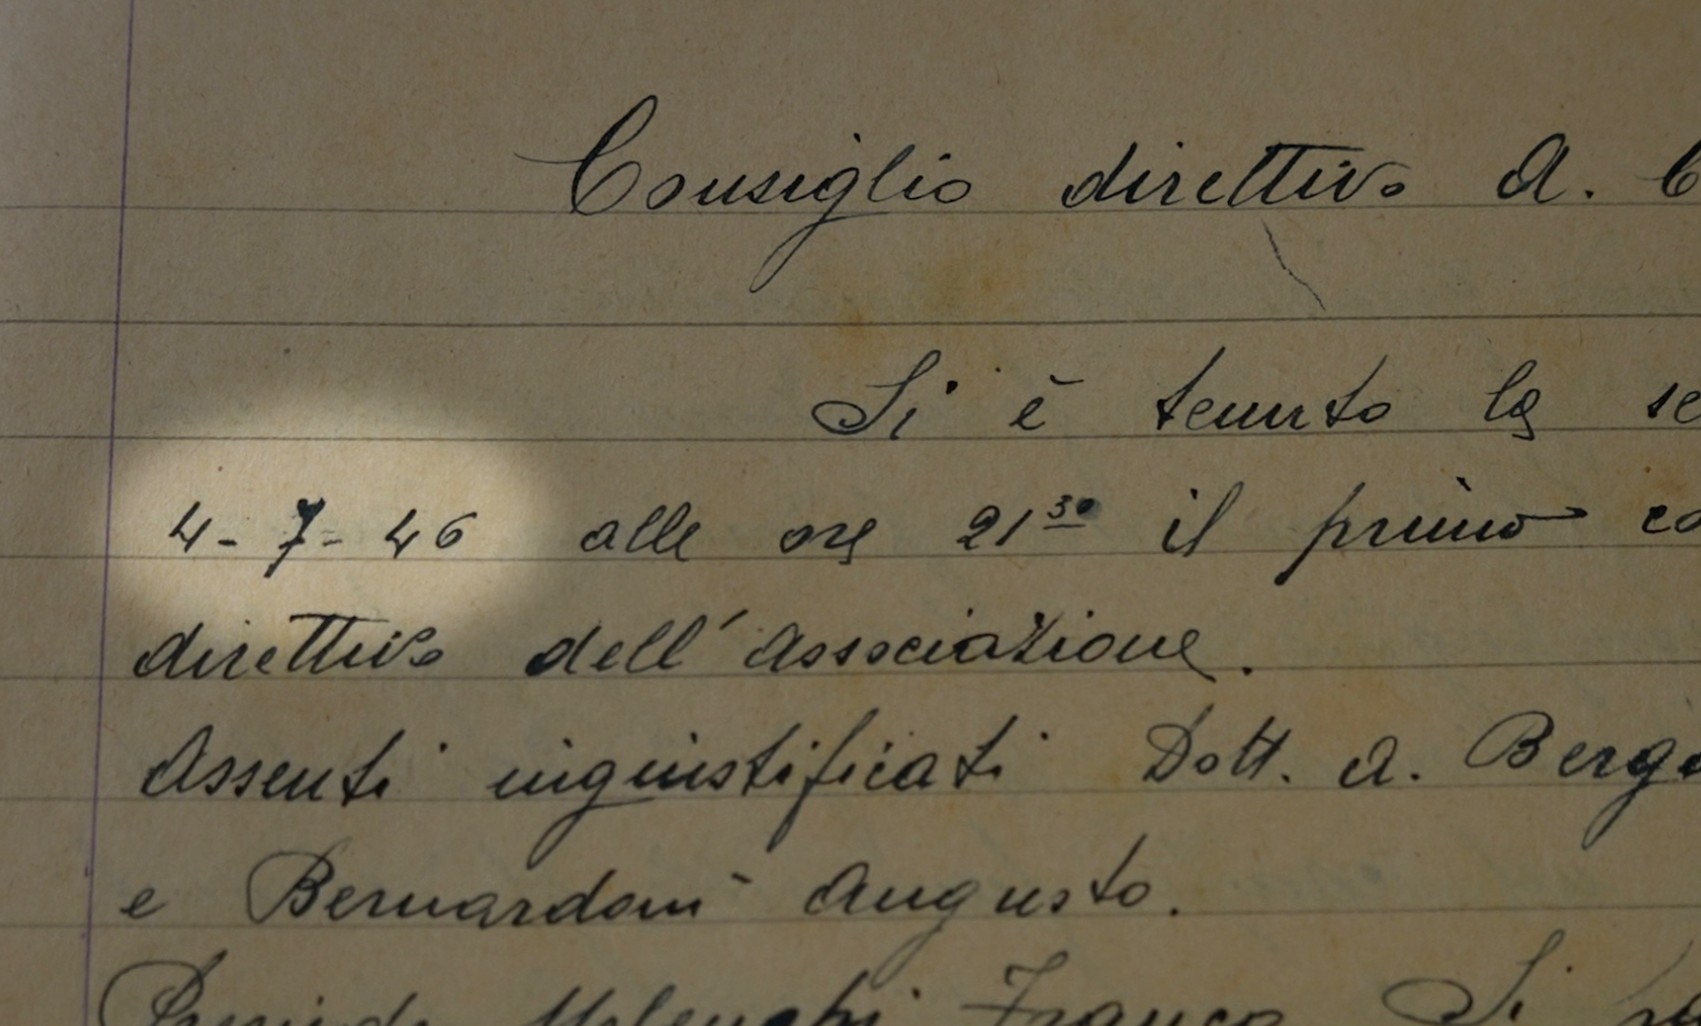 Consiglio direttivo A. C
Si è tenuto la se
4-7-46 alle ore 21³⁰ il primo co
direttivo dell'Associazione.
Assenti ingiustificati Dott. A. Berga
e Bernardoni Augusto.
Presiede Molenghi Franco Si